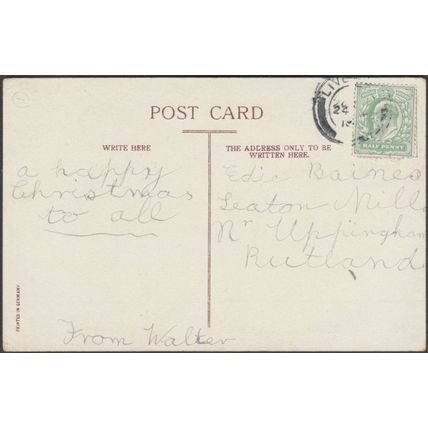 POST CARD
WRITE HERE
THE ADDRESS ONLY TO BE
WRITTEN HERE.
a happy
Christmas
to all
From Walter
Edie Baines
Seaton Mill
Nr Uppingham
Rutland
HALF PENNY
PRINTED IN GERMANY